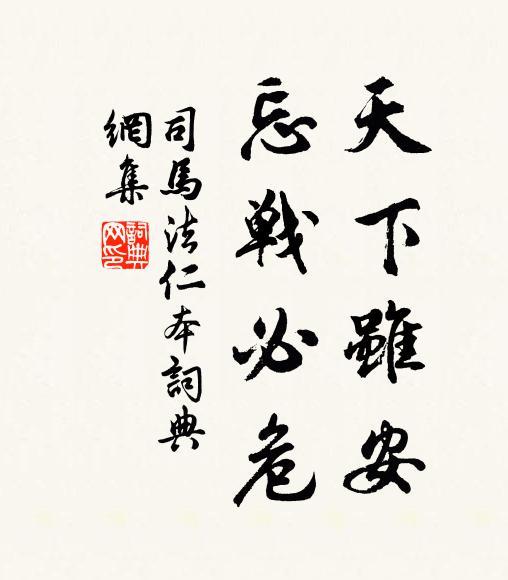 天下雖安
忘戦必危
司馬法仁本詞典
網集
詞典
网印